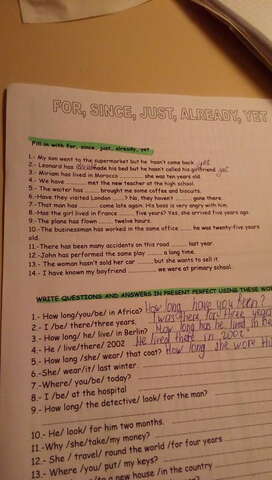 FOR, SINCE, JUST, ALREADY, YET
Fill in with for, since, just, already, yet.
1.- My son went to the supermarket but he hasn't come back yet
2.- Leonard has made his bed but he hasn't called his girlfriend yet
3.- Miriam has lived in Morocco ........ she was ten years old.
4.- We have ........ met the new teacher at the high school.
5.- The waiter has ...... brought me some coffee and biscuits.
6.- Have they visited London ......? No, they haven't ........ gone there.
7.- That man has ........ come late again. His boss is very angry with him.
8.-Has the girl lived in France ....... five years? Yes, she arrived five years ago.
9.- The plane has flown ........ twelve hours.
10.- The businessman has worked in the same office ...... he was twenty-five years
old.
11.- There has been many accidents on this road ........ last year.
12.-John has performed the same play ........ a long time.
13.- The woman hasn't sold her car ........ but she wants to sell it.
14.- I have known my boyfriend ........ we were at primary school.
WRITE QUESTIONS AND ANSWERS IN PRESENT PERFECT USING THESE
1.- How long/you/be/ in Africa? How long have you been?
2.- I /be/ there/three years. I was there for three years
3.- How long/ he/ live/ in Berlin? How long has he lived in
4.- He / live/there/ 2002 He lived there in 2002
5.- How long /she/ wear/ that coat? How long she wore
6.-She/ wear/it/ last winter
7.-Where/ you/be/ today?
8.- I /be/ at the hospital
9.- How long/ the detective/ look/ for the man?
10.- He/ look/ for him two months.
11.- Why /she/take/my money?
12.- She / travel/ round the world /for four years
13.- Where /you/ put/ my keys?
/to a new house /in the country